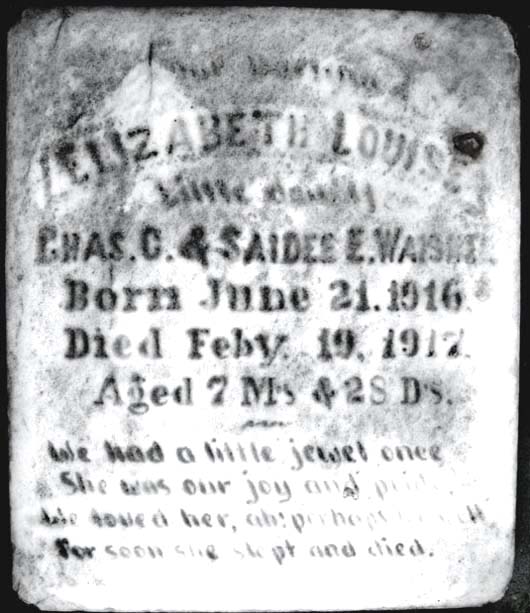 ELIZABETH LOUISE
Little
CHAS. C. & SAIDEE E.
Born June 21. 1916.
Died Feby. 19, 1917.
Aged 7 Ms & 28 D's.
We had a little jewel once
She was our joy and pride,
We loved her, ah! perhaps
For soon she slept and died.